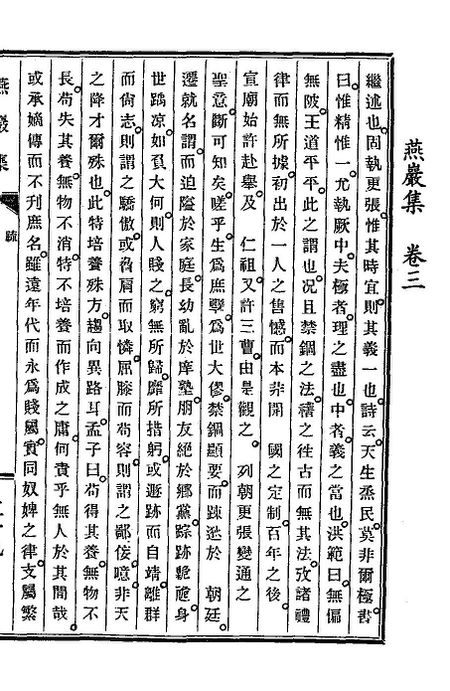 燕巖集 卷三
繼述也。固執更張。惟其時宜則其義一也。詩云。天生烝民。莫非爾極。書
曰。惟精惟一。允執厥中。夫極者。理之盡也。中者。義之當也。洪範曰。無偏
無陂。王道平平。此之謂也。况且禁錮之法。稽之徃古而無其法。攷諸禮
律而無所據。初出於一人之售憾。而本非開 國之定制。百年之後。
宣廟始許赴舉。及 仁祖又許三曹。由是觀之。 列朝更張變通之
聖意。斷可知矣。嗟乎。生爲庶孽。爲世大僇。禁錮顯要。而踈迯於 朝廷。
遷就名謂。而迫隘於家庭。長幼亂於庠塾。朋友絶於鄉黨。踪跡臲卼。身
世踽凉。如負大何。則人賤之。窮無所歸。靡所措躬。或遯跡而自靖。離群
而尙志。則謂之驕傲。或脅肩而取憐。屈膝而苟容。則謂之鄙佞。噫。非天
之降才爾殊也。此特培養殊方。趨向異路耳。孟子曰。苟得其養。無物不
長。苟失其養。無物不消。特不培養而作成之。庸何貴乎無人於其間哉。
或承嫡傳而不刋庶名。雖遠年代而永爲賤屬。實同奴婢之律。支屬繁
燕巖集
疏